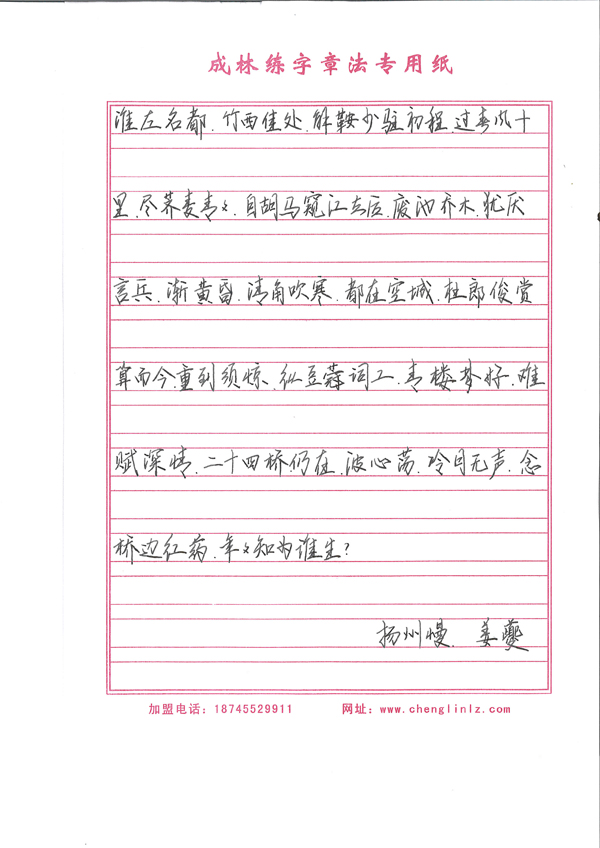 成林练字章法专用纸
淮左名都.竹西佳处.解鞍少驻初程.过春风十
里.尽荠麦青々.自胡马窥江去后.废池乔木.犹厌
言兵.渐黄昏.清角吹寒.都在空城.杜郎俊赏
算而今重到须惊.纵豆蔻词工.青楼梦好.难
赋深情.二十四桥仍在.波心荡.冷月无声.念
桥边红药.年々知为谁生?
扬州慢. 姜夔
加盟电话:18745529911 网址:www.chenglinlz.com